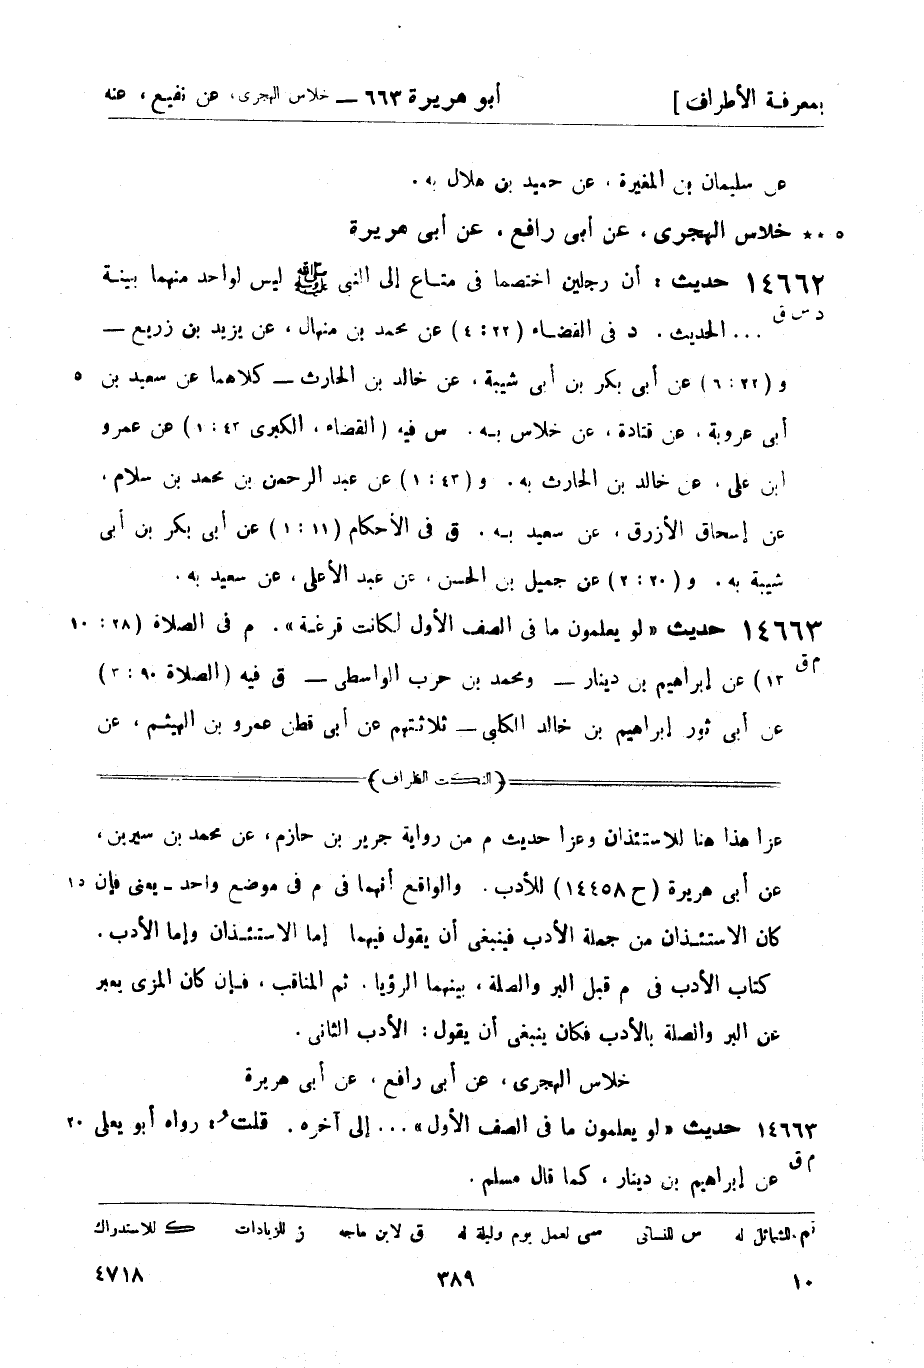 بمعرفة الأطراف ] أبو هريرة ٦٦٣ — خلاس الهجرى، عن نفيع، عنه
عن سليمان بن المغيرة، عن حميد بن هلال به.
٥ ** خلاس الهجرى، عن أبى رافع، عن أبى هريرة
١٤٦٦٢ حديث : أن رجلين اختصما فى متـاع إلى النبى ﷺ ليس لواحد منهما بينـة
د س ق ... الحديث. د فى القضـاء (٢٢ : ٤) عن محمد بن منهال، عن يزيد بن زريع —
و (٢٢ : ٦) عن أبى بكر بن أبى شيبة، عن خالد بن الحارث — كلاهما عن سعيد بن ٥
أبى عروبة، عن قتادة، عن خلاس بـه. س فيه (القضاء، الكبرى ٤٣ : ١) عن عمرو
ابن على، عن خالد بن الحارث به. و (٤٣ : ١) عن عبد الرحمن بن محمد بن سلام،
عن إسحاق الأزرق، عن سعيد بـه. ق فى الأحكام (١١ : ١) عن أبى بكر بن أبى
شيبة به. و (٢٠ : ٢) عن جميل بن الحسن، عن عبد الأعلى، عن سعيد به.
١٤٦٦٣ حديث «لو يعلمون ما فى الصف الأول لكانت قرعـة». م فى الصلاة (٢٨ : ١٠
م ق ١٣) عن إبراهيم بن دينار — ومحمد بن حرب الواسطى — ق فيه (الصلاة ٩٠ : ٣)
عن أبى ثور إبراهيم بن خالد الكلبى — ثلاثتهم عن أبى قطن عمرو بن الهيثـم، عن
(النكت الظراف)
عزا هذا هنا للاستئذان وعزا حديث م من رواية جرير بن حازم، عن محمد بن سيرين،
عن أبى هريرة (ح ١٤٤٥٨) للأدب. والواقع أنهما فى م فى موضع واحد - يعنى فإن ١٥
كان الاستئـذان من جملة الأدب فينبغى أن يقول فيهما إما الاستئـذان وإما الأدب.
كتاب الأدب فى م قبل البر والصلة، بينهما الرؤيا. ثم المناقب، فـإن كان المزى يعبر
عن البر والصلة بالأدب فكان ينبغى أن يقول : الأدب الثانى.
خلاس الهجرى، عن أبى رافع، عن أبى هريرة
١٤٦٦٣ حديث «لو يعلمون ما فى الصف الأول» ... إلى آخره. قلت : رواه أبو يعلى ٢٠
م ق عن إبراهيم بن دينار، كما قال مسلم.
تم للشمائل له س للنسائى سى لعمل يوم وليلة له ق لابن ماجه ز للزيادات ك للاستدراك
١٠ ٣٨٩ ٤٧١٨